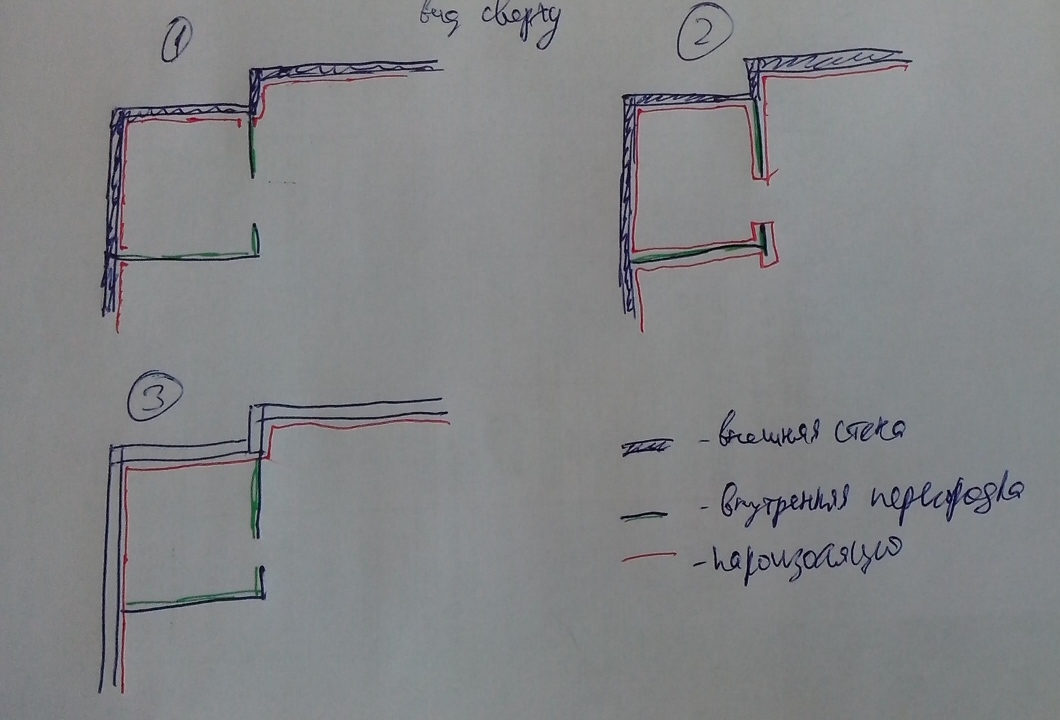 вид сверху
1
2
3
- внешняя стена
- внутренняя перегородка
- пароизоляцию